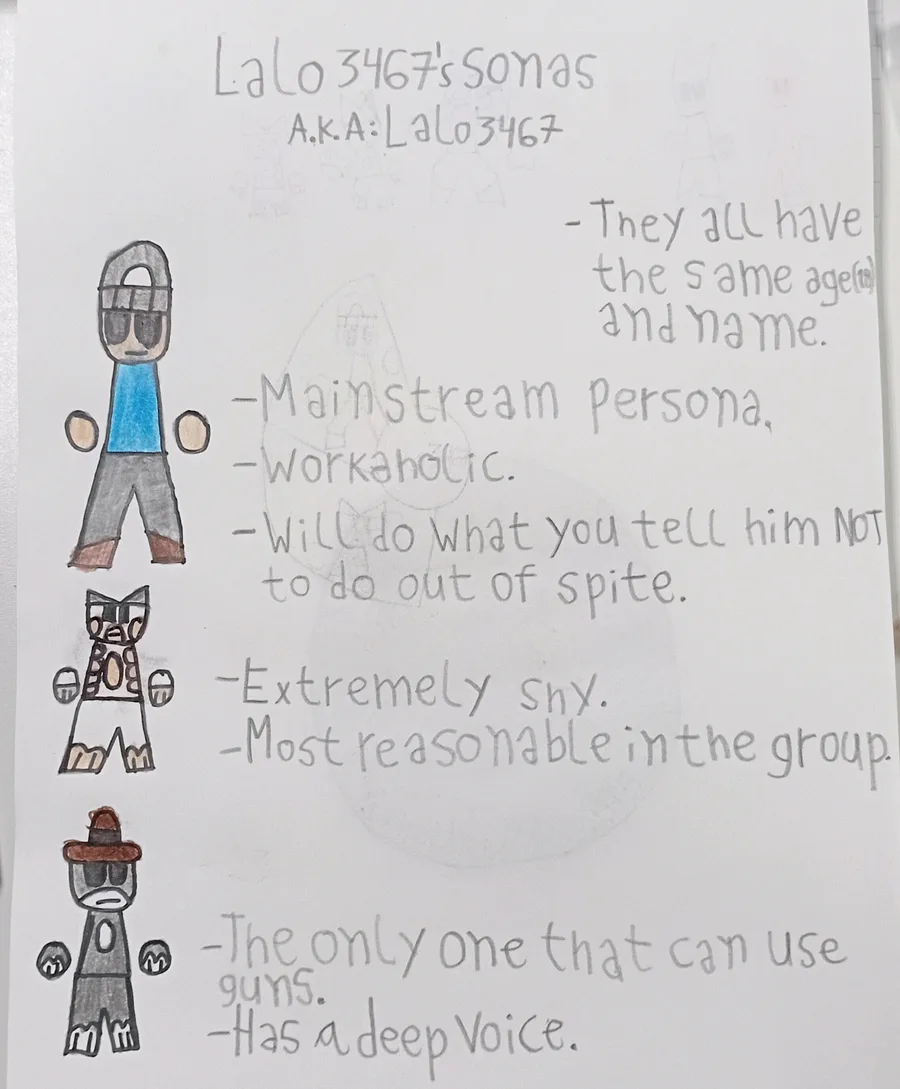 Lalo3467's Sonas
A.K.A: Lalo3467
- They all have
the same age
and name.
- Mainstream persona.
- Workaholic.
- Will do what you tell him NOT
to do out of spite.
- Extremely shy.
- Most reasonable in the group.
- The only one that can use
guns.
- Has a deep voice.